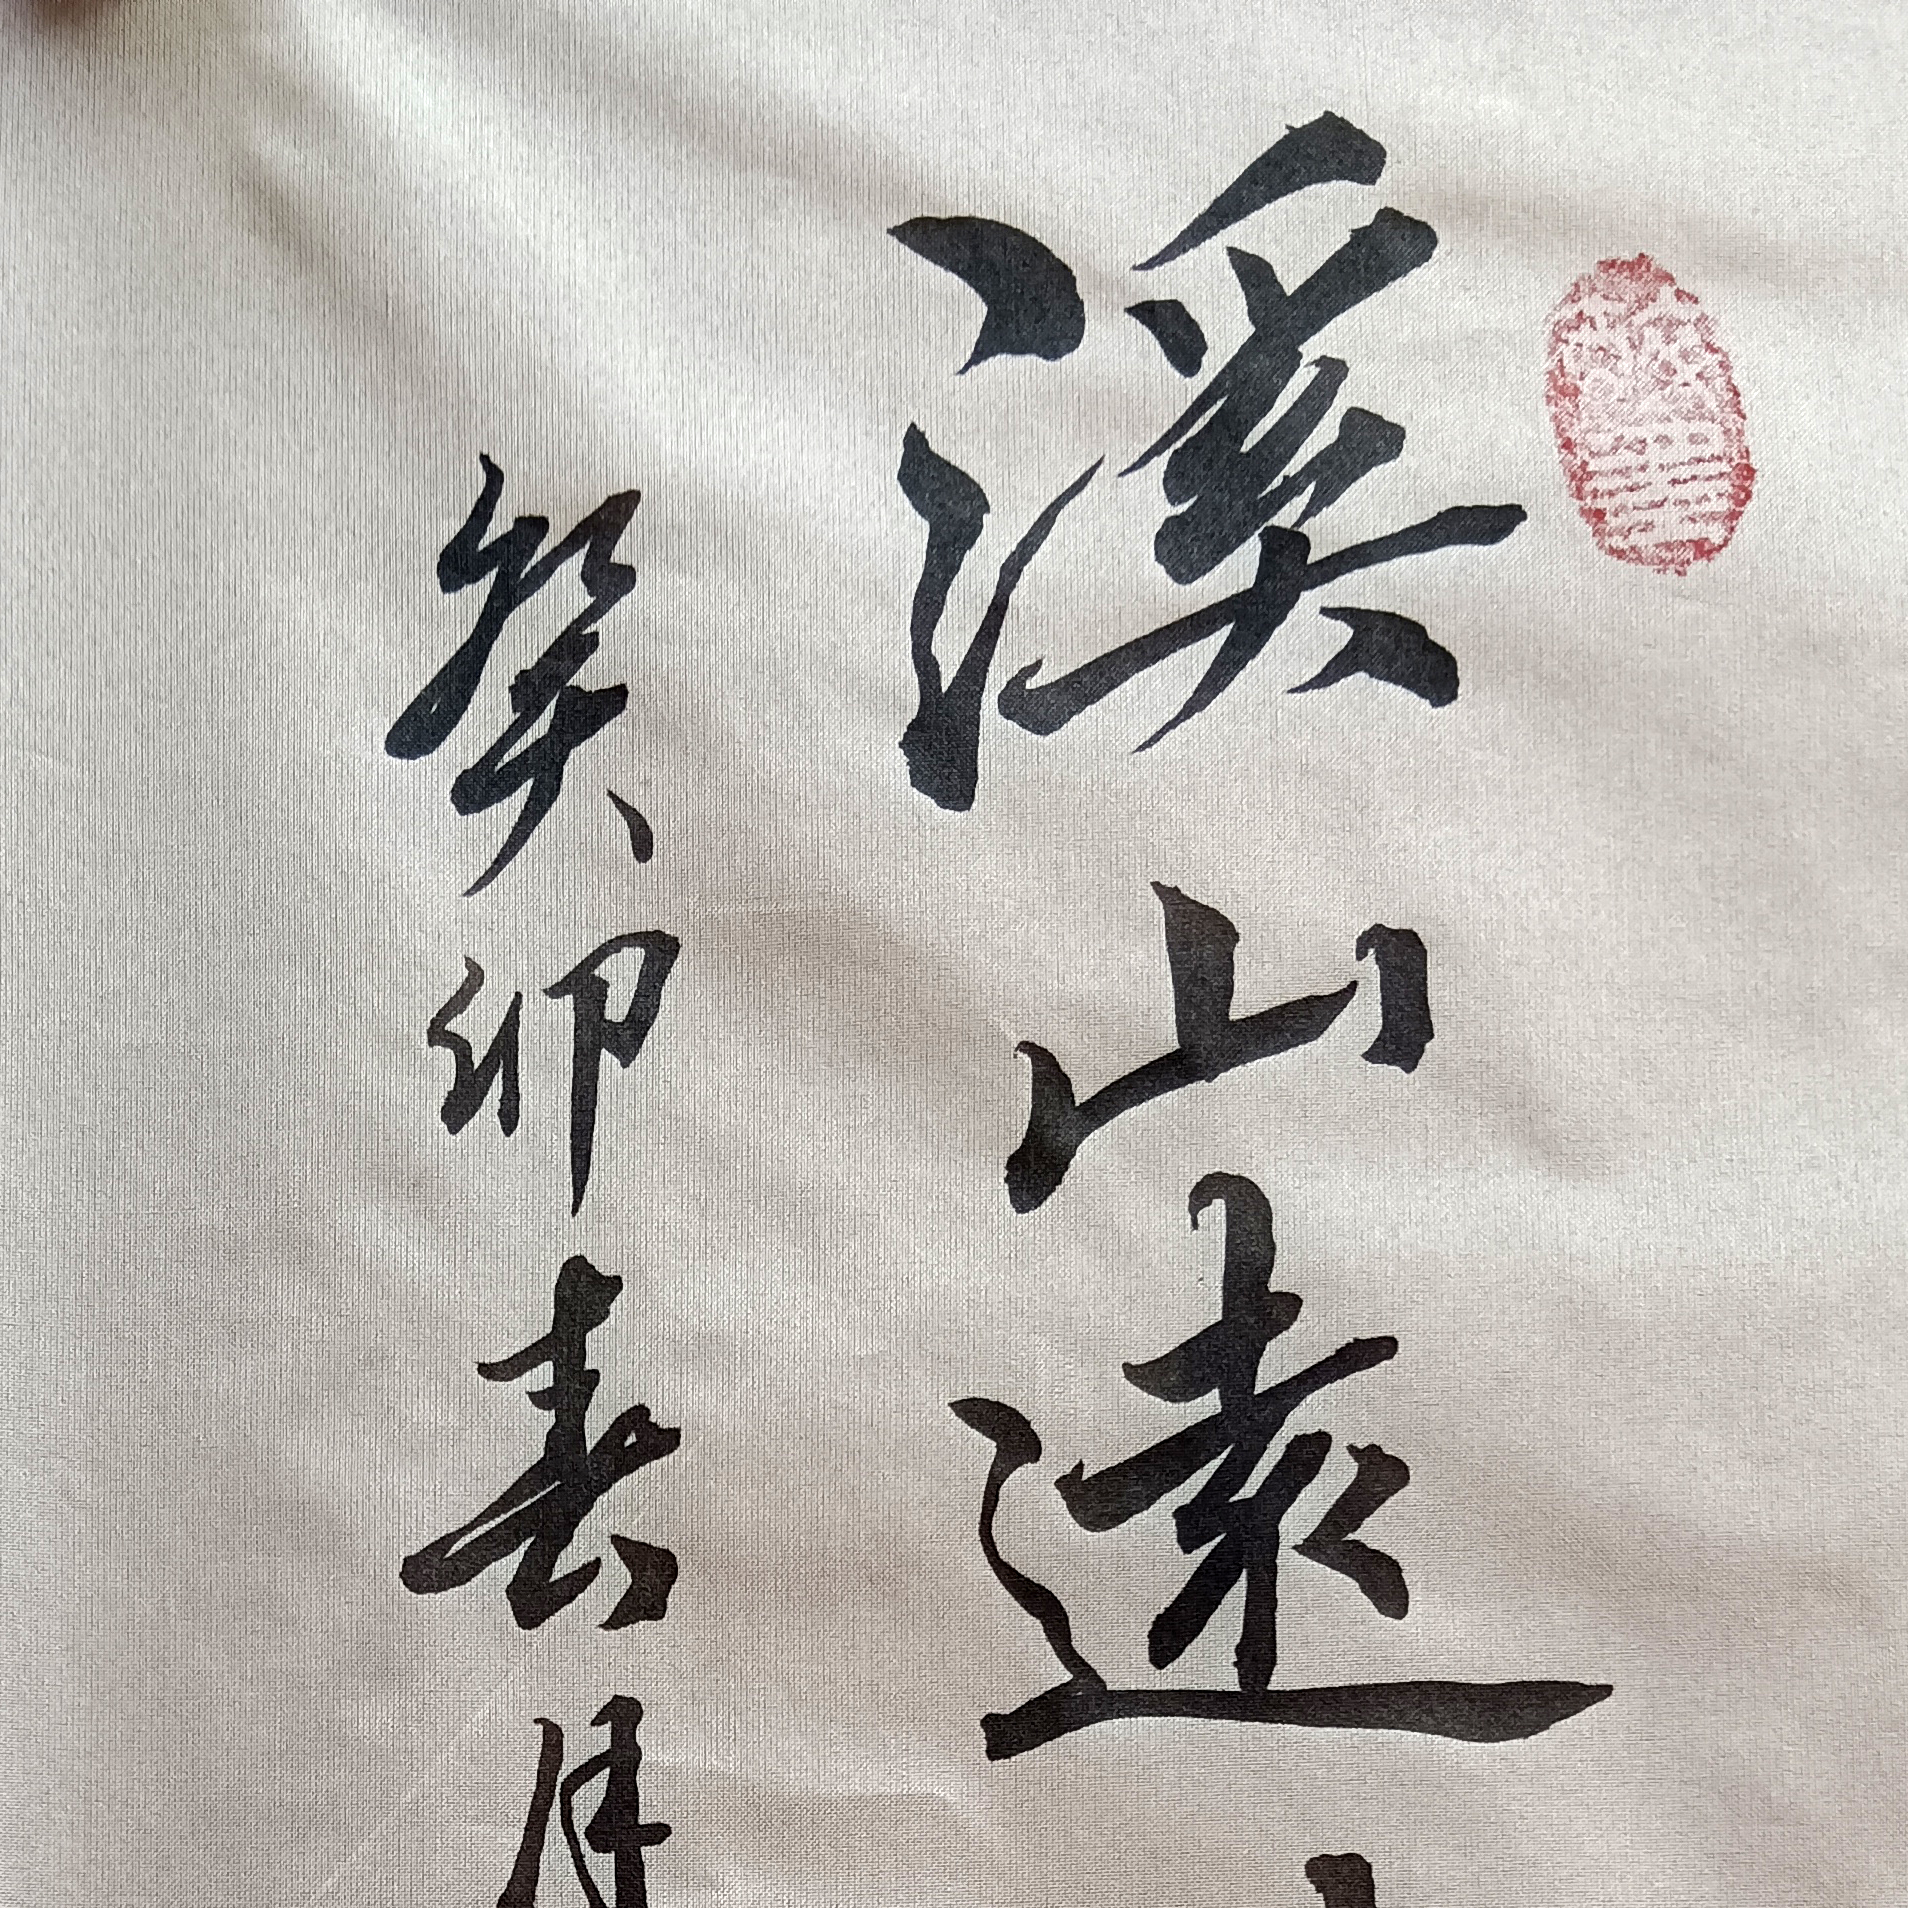 溪山遠
癸卯春月